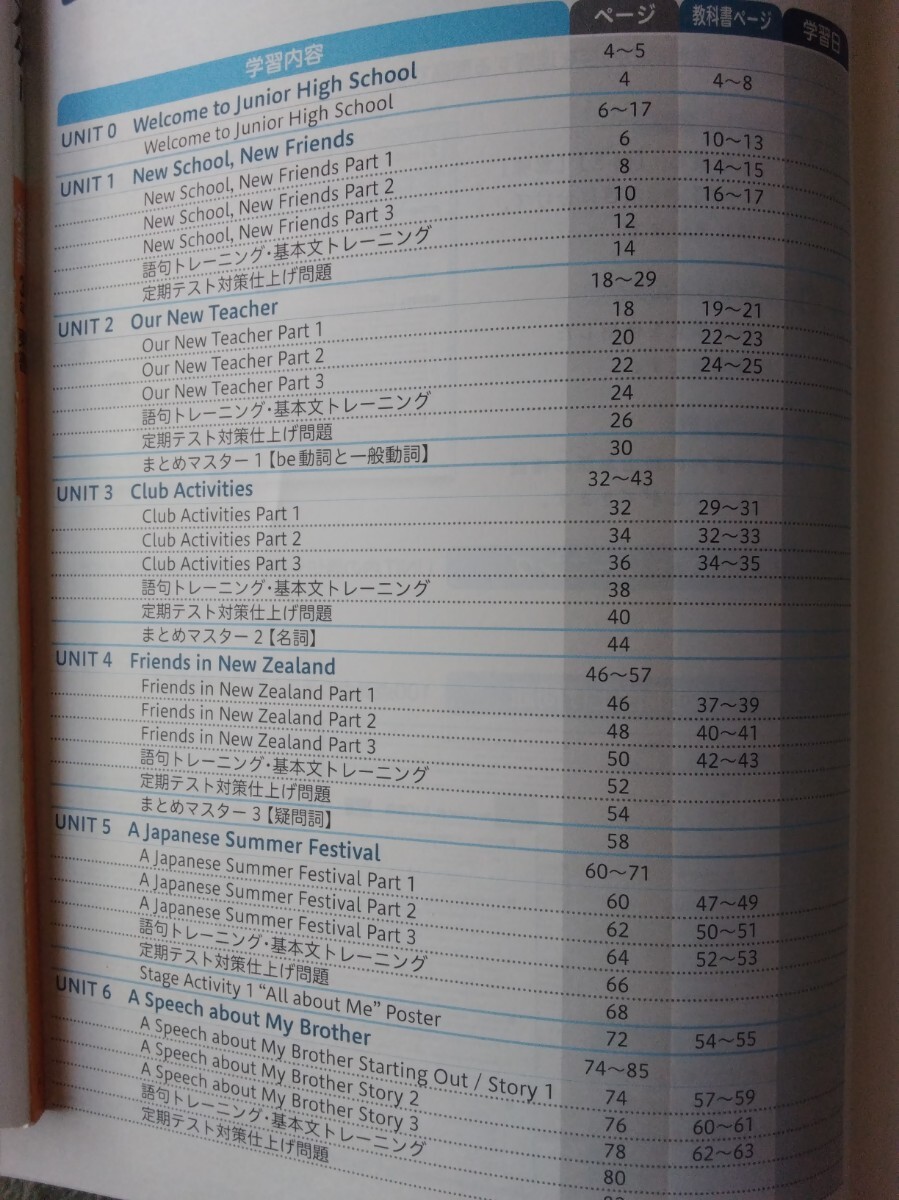 学習内容 ページ 教科書ページ 学習日
UNIT 0 Welcome to Junior High School 4～5
Welcome to Junior High School 4 4～8
UNIT 1 New School, New Friends 6～17
New School, New Friends Part 1 6 10～13
New School, New Friends Part 2 8 14～15
New School, New Friends Part 3 10 16～17
語句トレーニング・基本文トレーニング 12
定期テスト対策仕上げ問題 14
UNIT 2 Our New Teacher 18～29
Our New Teacher Part 1 18 19～21
Our New Teacher Part 2 20 22～23
Our New Teacher Part 3 22 24～25
語句トレーニング・基本文トレーニング 24
定期テスト対策仕上げ問題 26
まとめマスター 1【be動詞と一般動詞】 30
UNIT 3 Club Activities 32～43
Club Activities Part 1 32 29～31
Club Activities Part 2 34 32～33
Club Activities Part 3 36 34～35
語句トレーニング・基本文トレーニング 38
定期テスト対策仕上げ問題 40
まとめマスター 2【名詞】 44
UNIT 4 Friends in New Zealand 46～57
Friends in New Zealand Part 1 46 37～39
Friends in New Zealand Part 2 48 40～41
Friends in New Zealand Part 3 50 42～43
語句トレーニング・基本文トレーニング 52
定期テスト対策仕上げ問題 54
まとめマスター 3【疑問詞】 58
UNIT 5 A Japanese Summer Festival 60～71
A Japanese Summer Festival Part 1 60 47～49
A Japanese Summer Festival Part 2 62 50～51
A Japanese Summer Festival Part 3 64 52～53
語句トレーニング・基本文トレーニング 66
定期テスト対策仕上げ問題 68
Stage Activity 1 “All about Me” Poster 72 54～55
UNIT 6 A Speech about My Brother 74～85
A Speech about My Brother Starting Out / Story 1 74 57～59
A Speech about My Brother Story 2 76 60～61
A Speech about My Brother Story 3 78 62～63
語句トレーニング・基本文トレーニング 80
定期テスト対策仕上げ問題